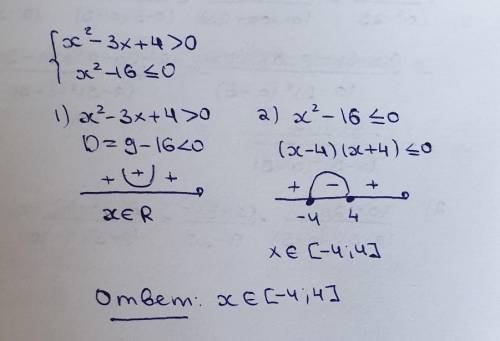 { x² - 3x + 4 > 0
x² - 16 ≤ 0
1) x² - 3x + 4 > 0
D = 9 - 16 < 0
+ (+) +
x ∈ R
2) x² - 16 ≤ 0
(x - 4)(x + 4) ≤ 0
+ - +
-4 4
x ∈ [-4; 4]
Ответ: x ∈ [-4; 4]